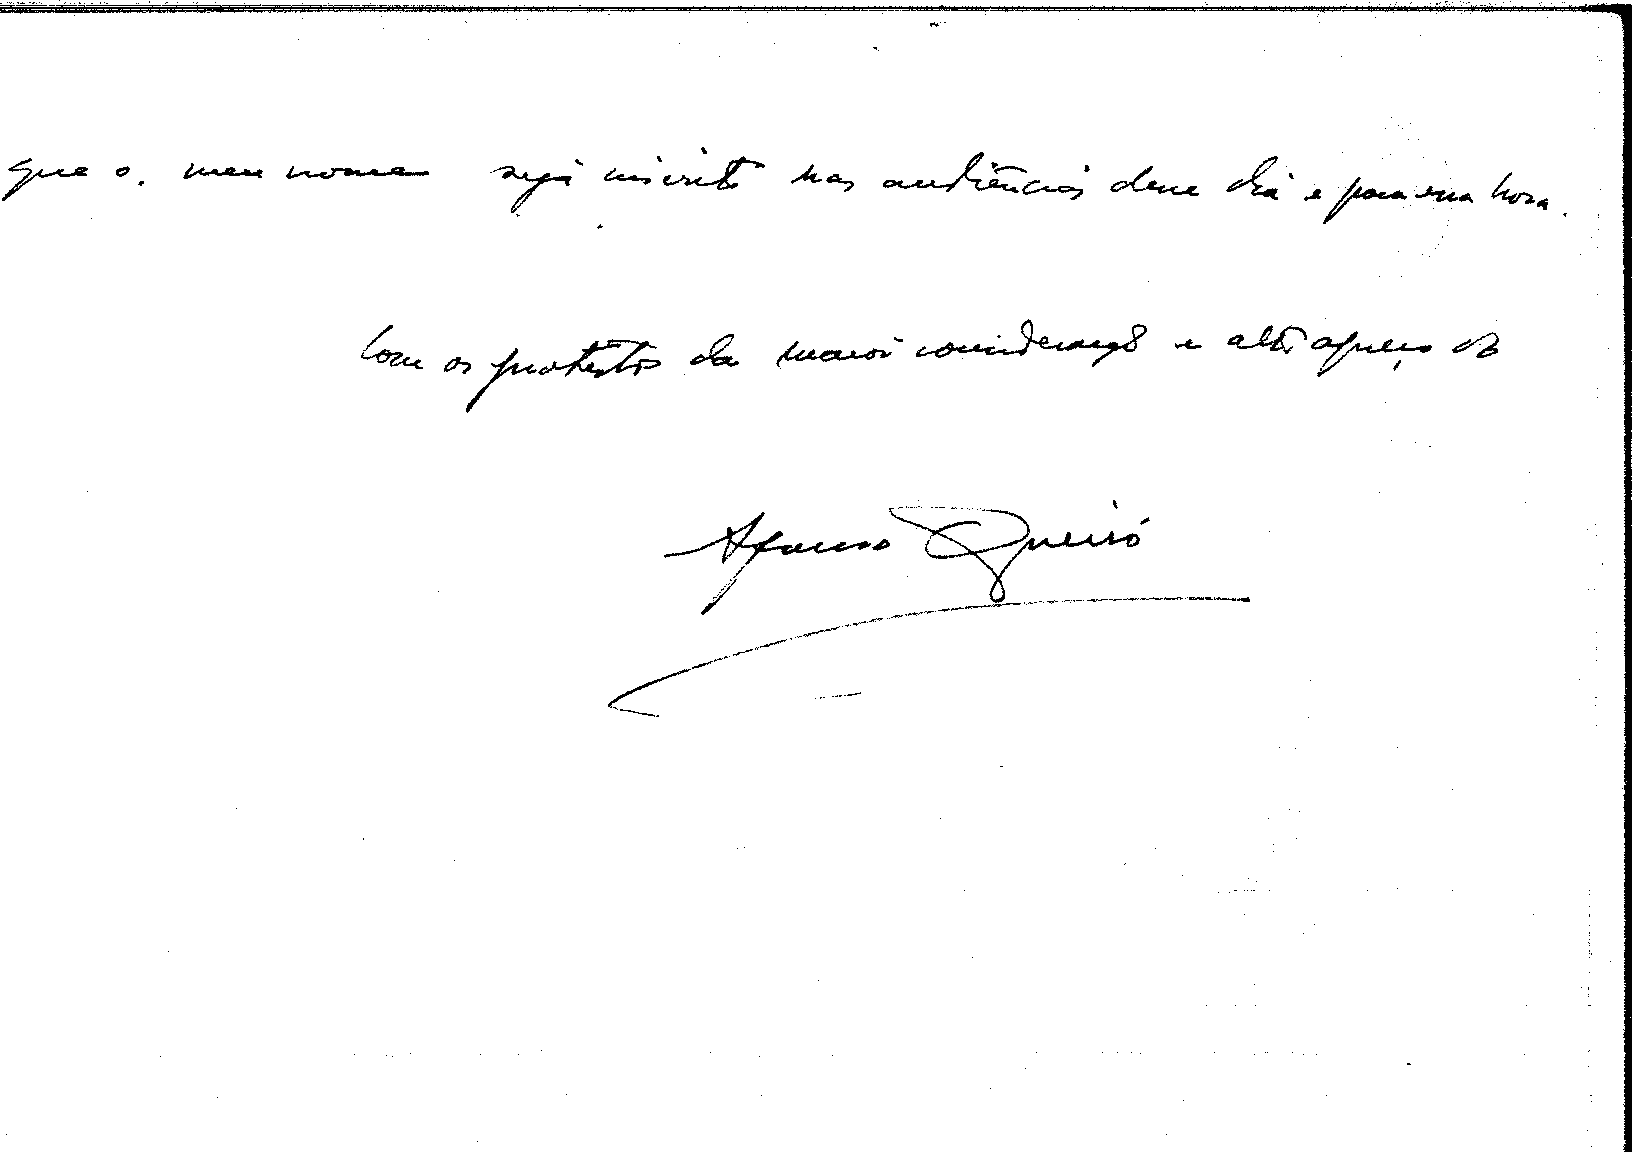 que o meu nome seja inscrito nas audiências desse dia e para essa hora.
Com os protestos da maior consideração e alto apreço do
Afonso Queiró